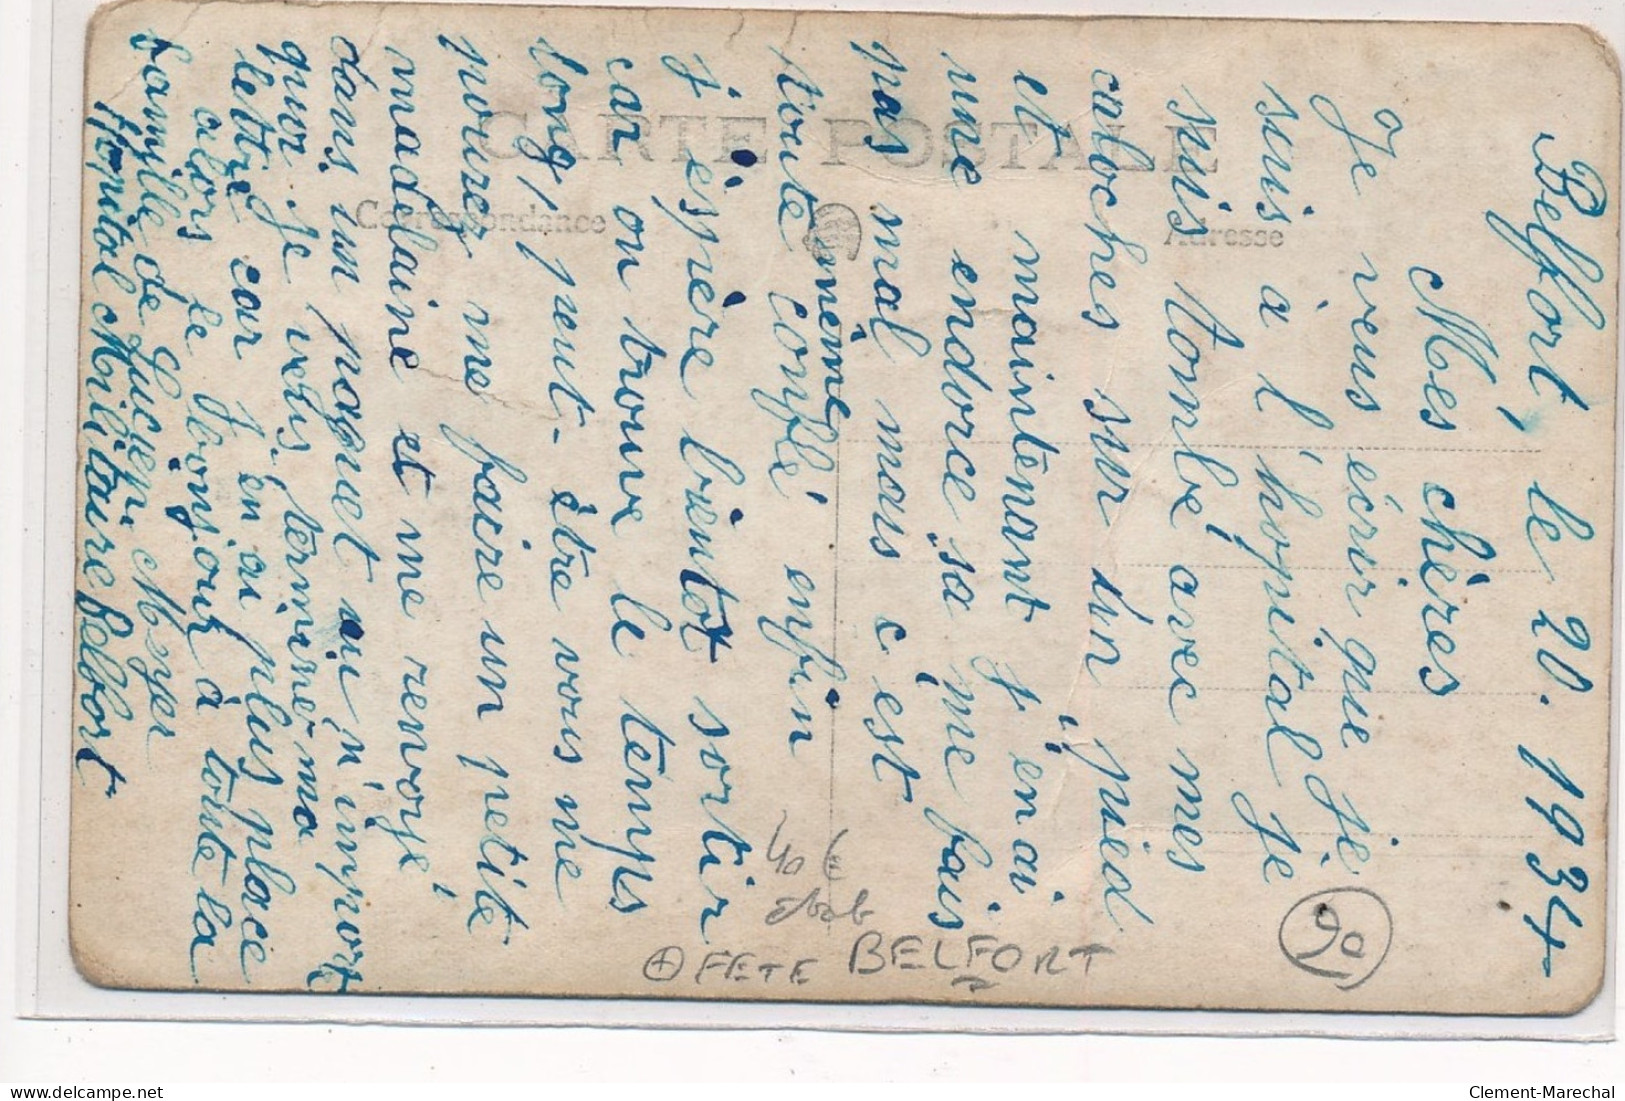 Belfort, le 20. 1934
Mes chères
Je veus écrir que je
suis à l'hopital je
suis tombé avec mes
caloches sur un pied
et maintenant j'en ai
une endorce sa me fais
pas mal mais c'est
même
toute conflé enfin
j'éspère bientot sortir
car on trouve le temps
long, peut-être vous me
pourez me faire un petite
madelaine et me renvoyé
dans un paquet ou n'import
quoi je vous términé ma
lettre car j'en ai plus place
alors le bonjour à toute la
famille de Lucien. Meyer
Hopital Militaire Belfort
CARTE POSTALE
Correspondance
Adresse
90
40
FETE BELFORT
Clement-Marechal
delcampe.net